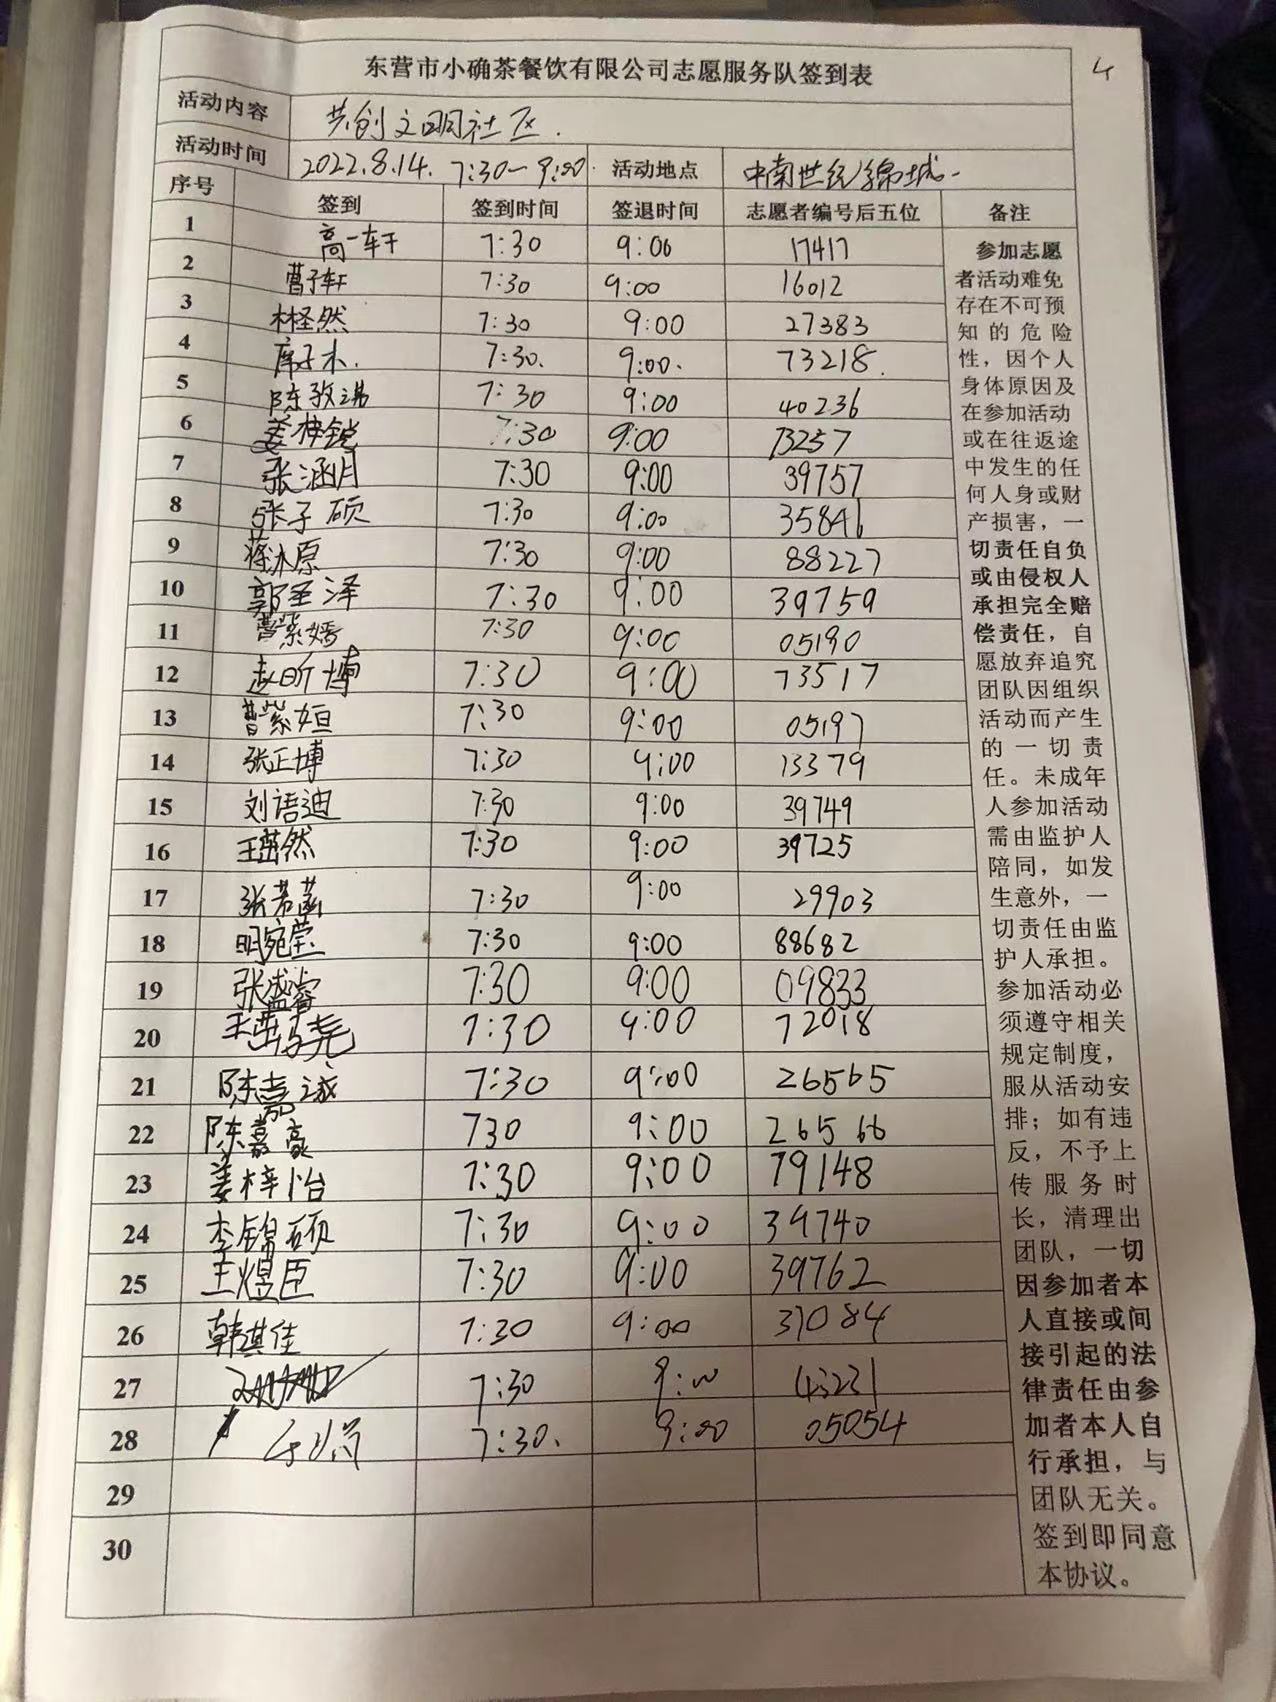 4
东营市小确茶餐饮有限公司志愿服务队签到表
活动内容 共创文明社区.
活动时间 2022.8.14. 7:30—9:00. 活动地点 中南世纪锦城.
序号 签到 签到时间 签退时间 志愿者编号后五位 备注
1 高一轩 7:30 9:00 17417
2 曹子轩 7:30 9:00 16012
3 林圣然 7:30 9:00 27383
4 席子木. 7:30. 9:00. 73218.
5 陈孜淇 7:30 9:00 40236
6 姜梓锐 7:30 9:00 13257
7 张涵月 7:30 9:00 39757
8 张子硕 7:30 9:00 35841
9 蒋沐原 7:30 9:00 88227
10 郭圣泽 7:30 9:00 39759
11 曹紫嫣 7:30 9:00 05190
12 赵昕博 7:30 9:00 73517
13 曹紫姮 7:30 9:00 05197
14 张正博 7:30 9:00 13379
15 刘语迪 7:30 9:00 39749
16 王茁然 7:30 9:00 39725
17 张芳菡 7:30 9:00 29903
18 明宛莹 7:30 9:00 88682
19 张盛睿 7:30 9:00 09833
20 7:30 9:00 72018
21 陈嘉诚 7:30 9:00 26565
22 陈嘉豪 730 9:00 26566
23 姜梓怡 7:30 9:00 79148
24 李锦硕 7:30 9:00 39740
25 王煜臣 7:30 9:00 39762
26 韩淇佳 7:30 9:00 37084
27 7:30 9:00 43231
28 7:30. 9:00 05054
29
30
参加志愿
者活动难免
存在不可预
知的危险
性，因个人
身体原因及
在参加活动
或在往返途
中发生的任
何人身或财
产损害，一
切责任自负
或由侵权人
承担完全赔
偿责任，自
愿放弃追究
团队因组织
活动而产生
的一切责
任。未成年
人参加活动
需由监护人
陪同，如发
生意外，一
切责任由监
护人承担。
参加活动必
须遵守相关
规定制度，
服从活动安
排；如有违
反，不予上
传服务时
长，清理出
团队，一切
因参加者本
人直接或间
接引起的法
律责任由参
加者本人自
行承担，与
团队无关。
签到即同意
本协议。